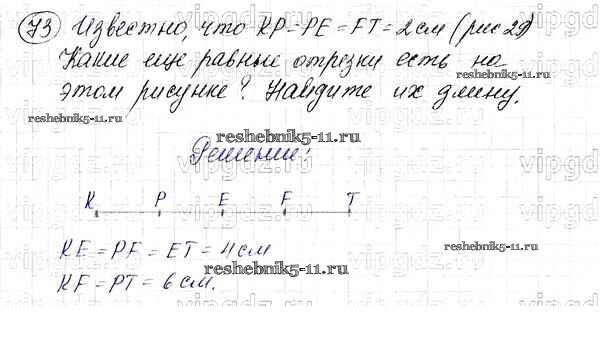 73 Известно, что KP=PE=FT=2см (рис 29)
Какие еще равные отрезки есть на
этом рисунке? Найдите их длину.
reshebnik5-11.ru
reshebnik5-11.ru
reshebnik5-11.ru
Решение:
K P E F T
KE = PF = ET = 4 см
reshebnik5-11.ru
reshebnik5-11.ru
KF = PT = 6 см.
vipgdz.ru